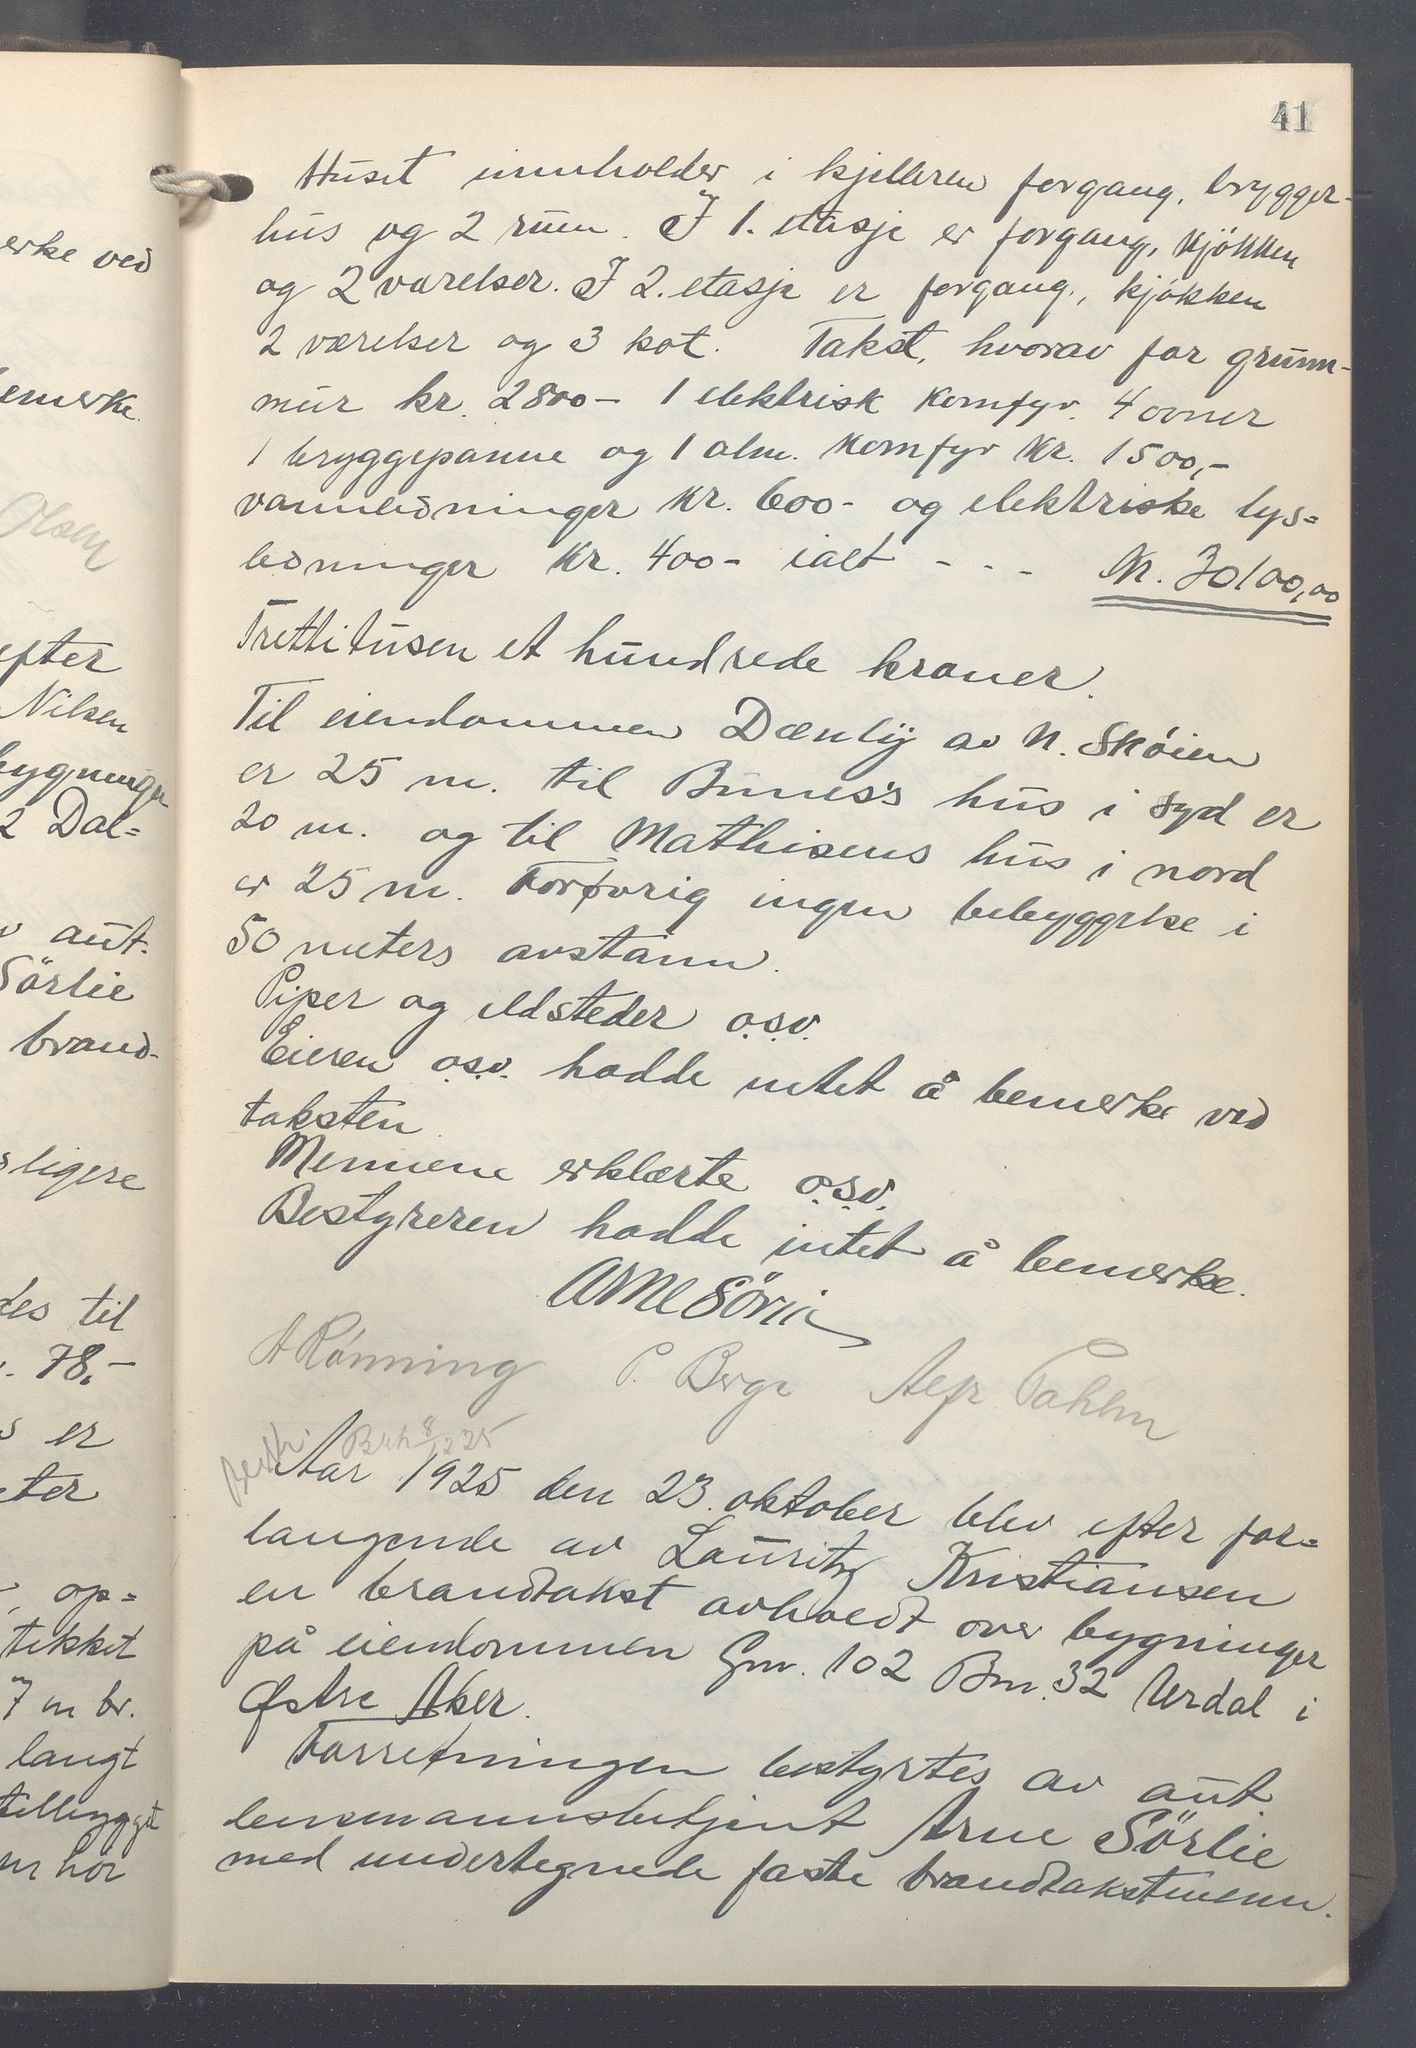 41
Huset innholder i kjelleren forgang, brygger-
hus og 2 rum. I 1. etasje er forgang, kjökken
og 2 værelser. I 2. etasje er forgang, kjøkken
2 værelser og 3 kot. Takst, hvorav for grunn-
mur kr. 2800- 1 elektrisk komfyr. 4 ovner
1 bryggepanne og 1 alm. komfyr kr. 1500,-
vannledninger kr. 600- og elektriske lys=
ledninger kr. 400- ialt - - - Kr. 30100,00
Trettitusen et hundrede kroner.
Til eiendommen Dænlÿ av N. Sköien
er 25 m. til Bunes's hus i syd er
20 m. og til Mathisens hus i nord
er 25 m. Forøvrig ingen bebyggelse i
50 meters avstann.
Piper og ildsteder o.s.v.
Eieren o.s.v. hadde intet å bemerke ved
taksten.
Mennene erklærte o.s.v.
Bestyreren hadde intet å bemerke.
Arne Sörlie
A Rønning P. Berge Alfr.
Brh 8/12 25
Aar 1925 den 23. oktober blev efter for=
langende av Lauritz Kristiansen
en brandtakst avholdt over bygninger
på eiendommen Gnr. 102 Bnr. 32 Urdal i
Østre Aker.
Forretningen bestyrtes av aut
lensmannsbetjent Arne Sörlie
med undertegnede faste brandtakstmenn.
erke ved
emerke.
Olsen
efter
Nilsen
bygninger
2 Dal=
aut.
Sörlie
brand-
ligere
des til
78,-
er
eter
op=
tikket
7 m br.
langt
tilbygget